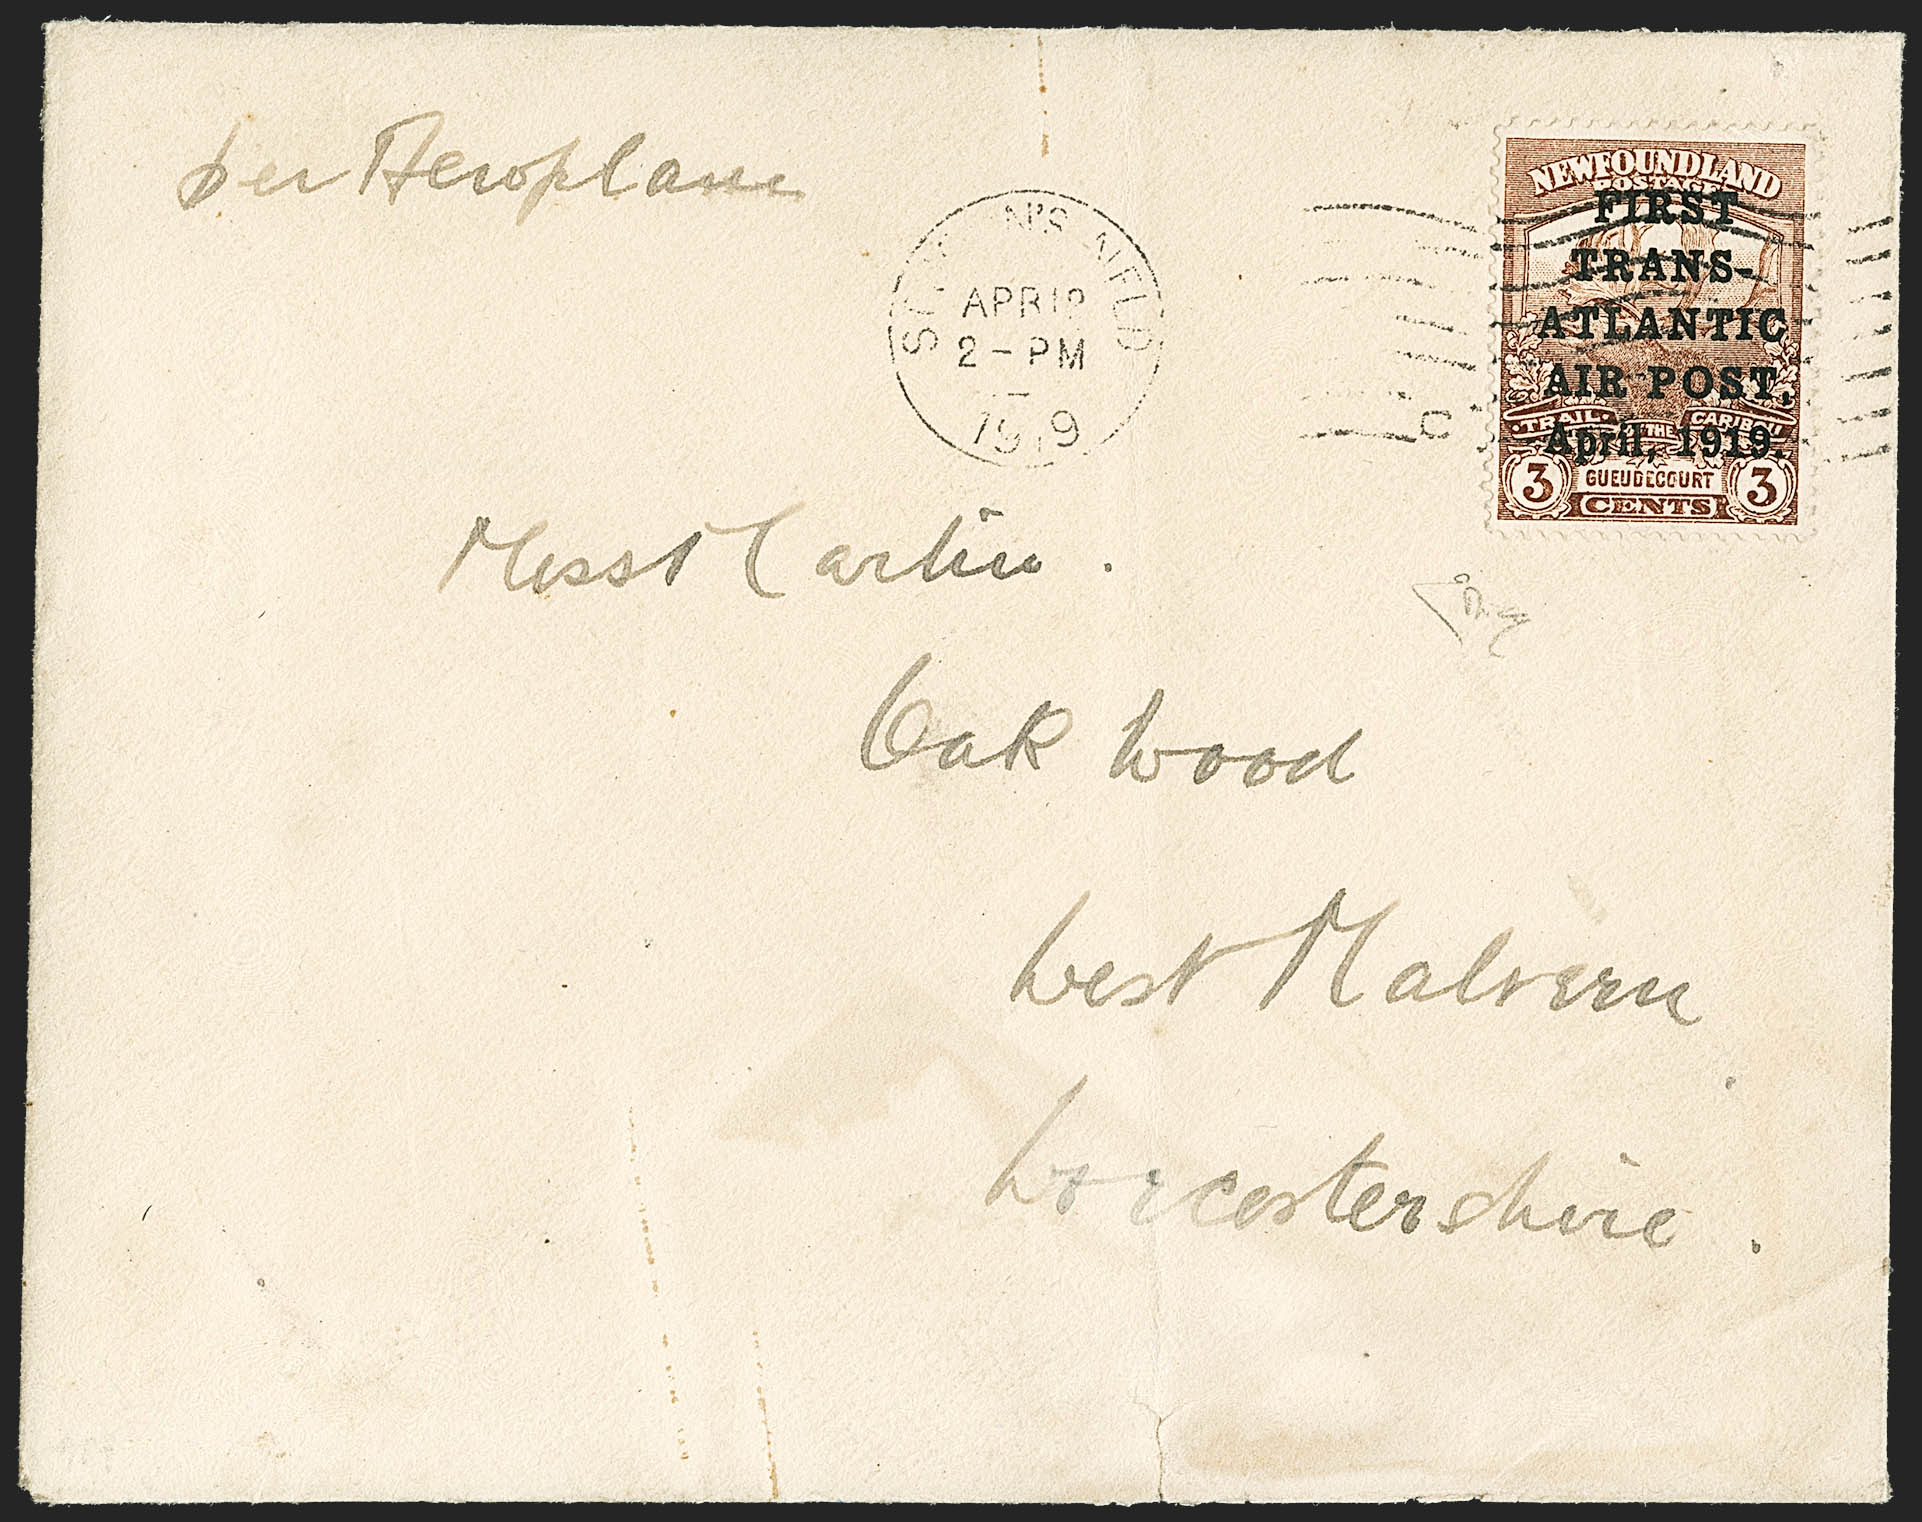 per Aeroplane
ST. JOHN'S NFLD
APR 12
2-PM
1919
NEWFOUNDLAND
POSTAGE
FIRST
TRANS-
ATLANTIC
AIR POST,
April, 1919.
TRAIL OF THE CARIBOU
3 GUEUDECOURT 3
CENTS
Miss Martin.
Oak Wood
West Malvern
Worcestershire.